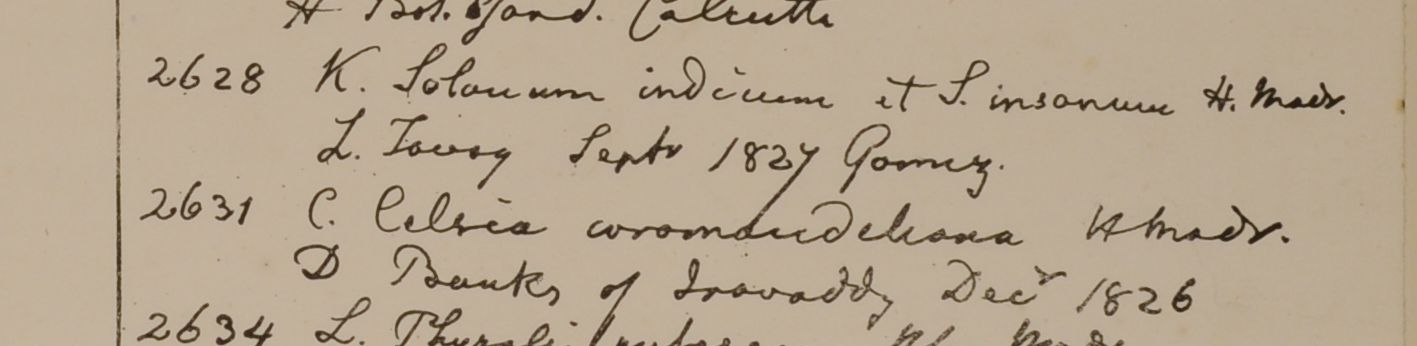 H Bot. Gard. Calcutta
2628 K. Solanum indicum et S. insanum H. Madr.
L. Tavoy Septr 1827 Gomez.
2631 C. Celsia coromandeliana H Madr.
D Banks of Iravaddy Decr 1826
2634 L.